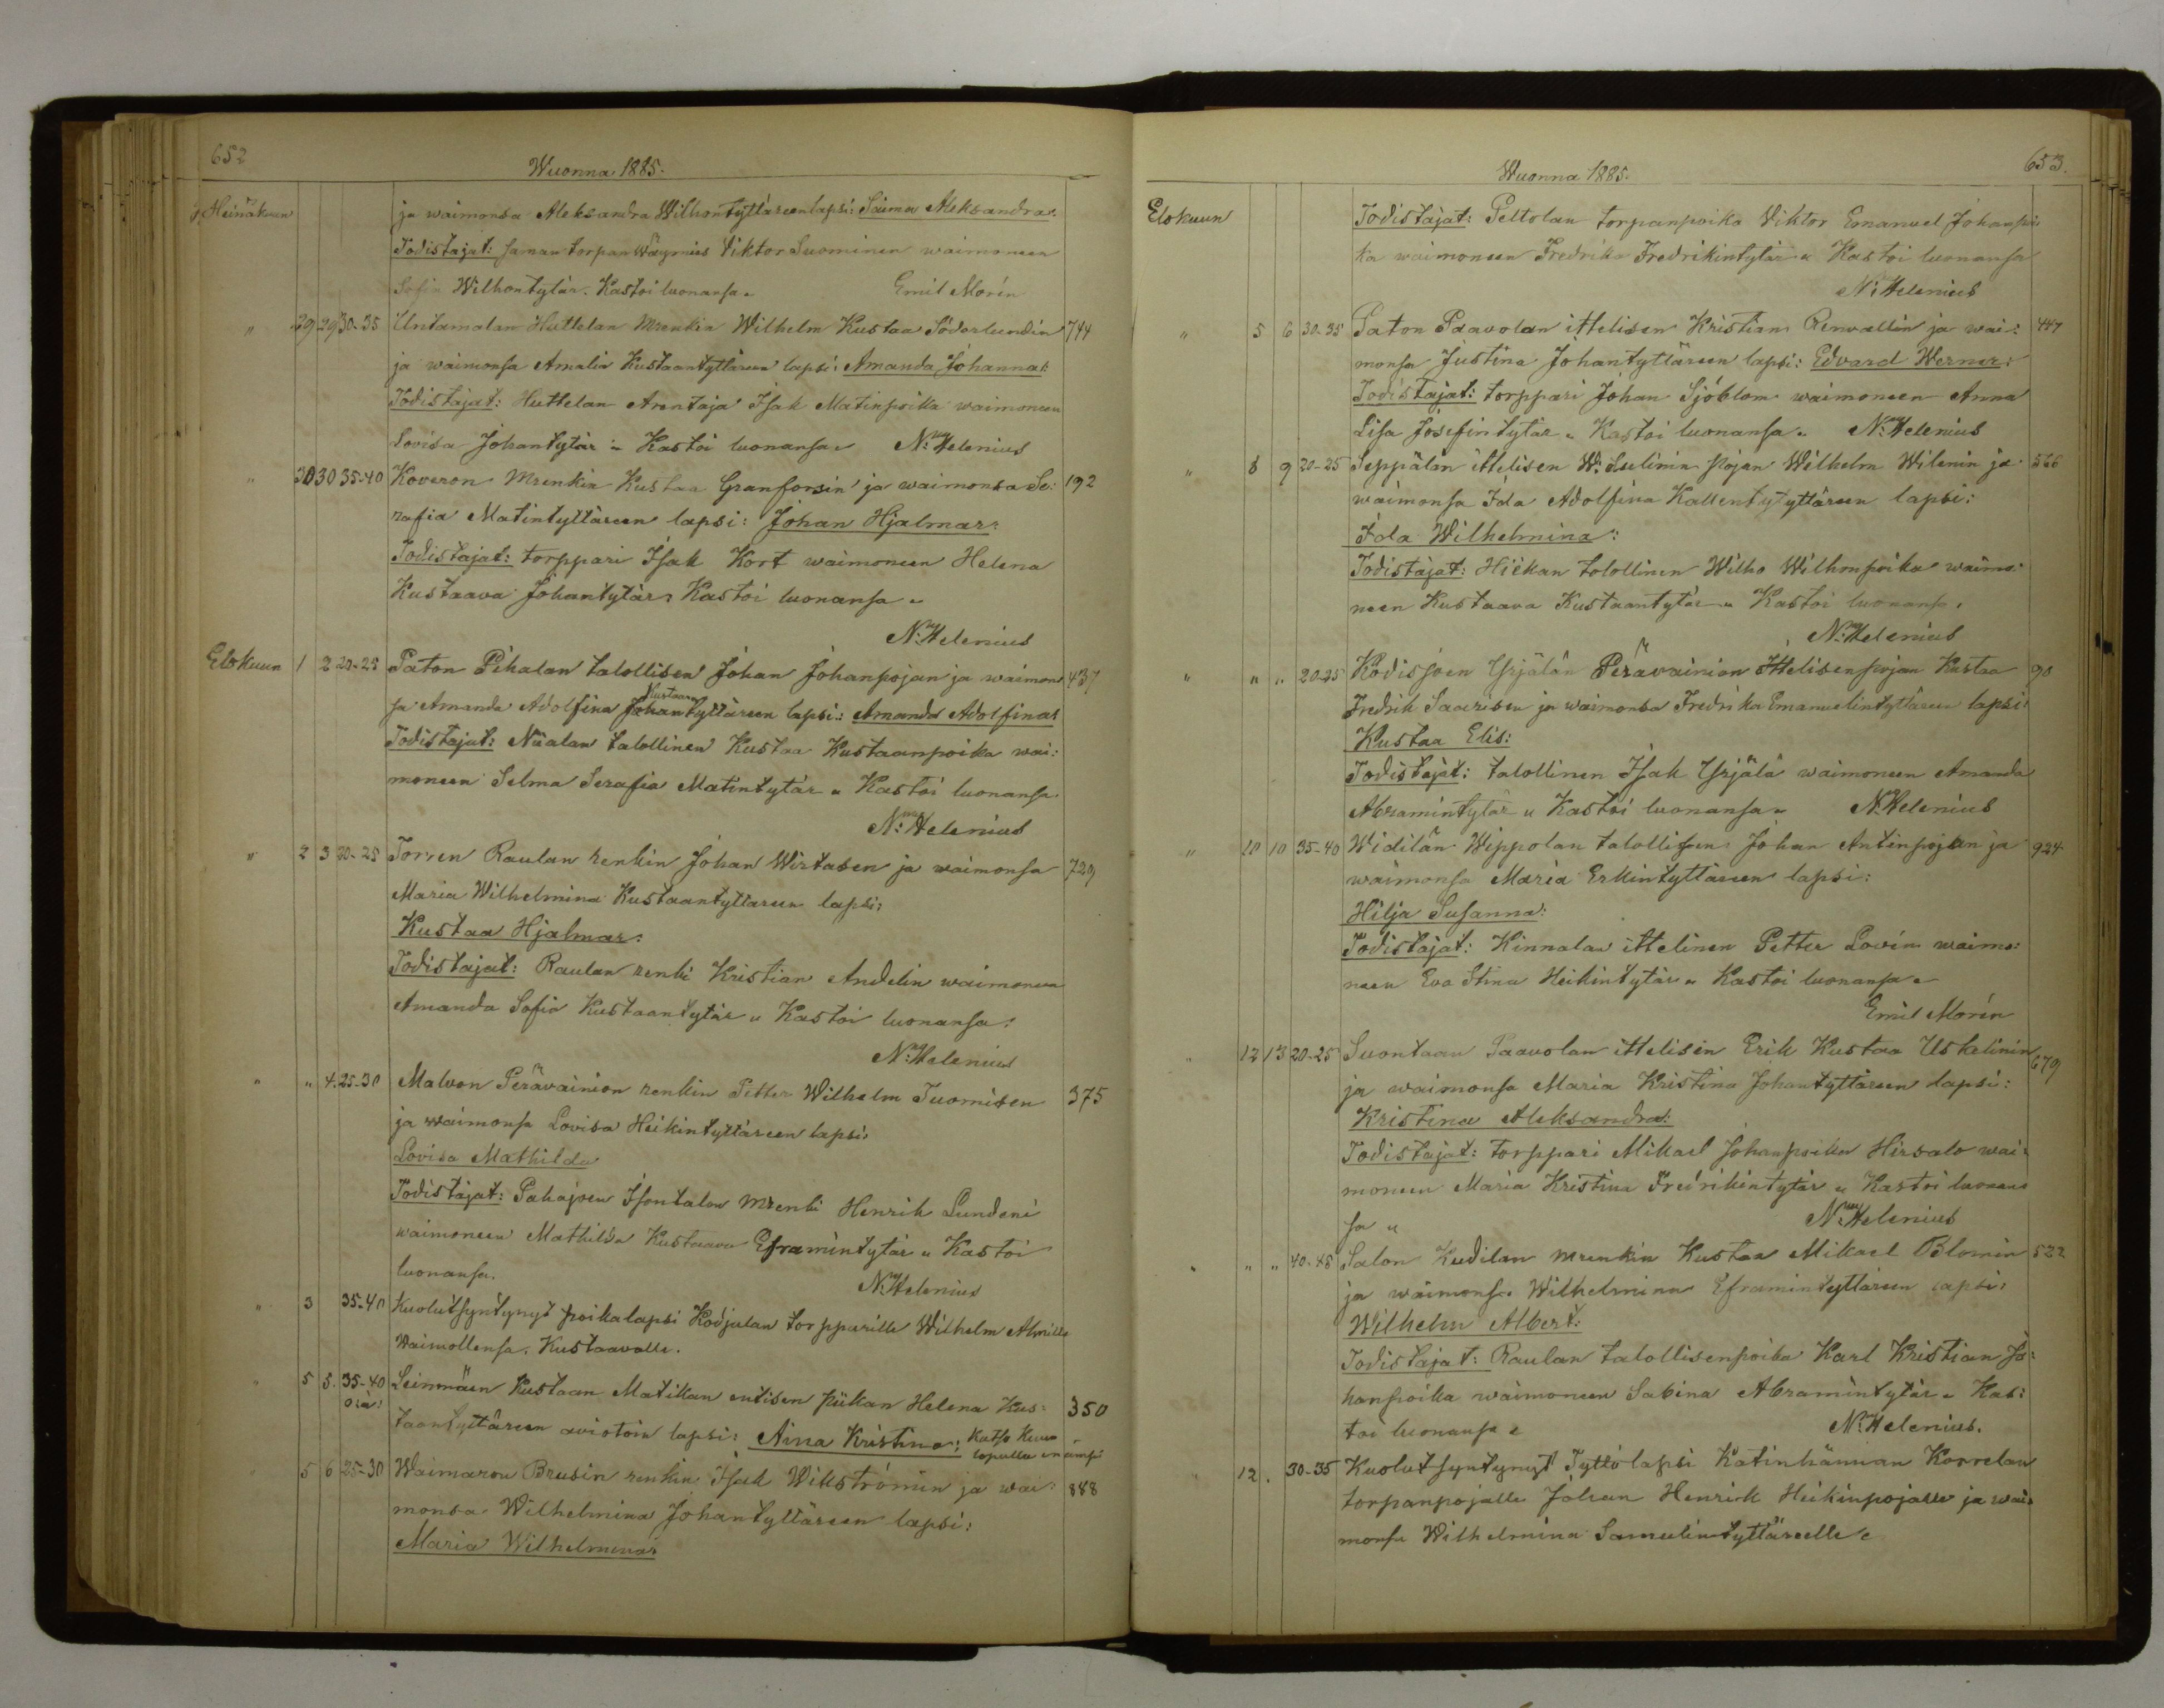 652
Wuonna 1885.
Heinäkuun ja waimonsa Aleksandra Wilhontyttäreen lapsi: Saima Aleksandra.
Todistajat: saman torpan Wäymies Viktor Suominen waimoneen
Sofia Wilhontytär. Kastoi luonansa. Emil Morén
" 29 29 30-35 Untamalan Huttelan Mrenkin Wilhelm Kustaa Söderlundin 744
ja waimonsa Amalia Kustaantyttäreen lapsi: Amanda Johanna:
Todistajat: Huttelan Arentaja Isak Matinpoika waimoneen
Lovisa Johantytär " Kastoi luonansa " N: Helenius
" 30 30 35-40 Koveron Mrenkin Kustaa Granforsin ja waimonsa Se: 192
rafia Matintyttäreen lapsi: Johan Hjalmar:
Todistajat: torppari Isak Kort waimoneen Helena
Kustaava Johantytär: Kastoi luonansa "
N: Helenius
Elokuun 1 2 20-25 Paton Pihalan talollisen Johan Johanpojan ja waimon 437
sa Amanda Adolfina Johantyttäreen Kustaan lapsi: Amanda Adolfina:
Todistajat: Niialan talollinen Kustaa Kustaanpoika wai:
moneen Selma Serafia Matintytär " Kastoi luonansa.
N: Helenius
" 2 3 20-25 Torren Raulan renkin Johan Wirtasen ja waimonsa 729
Maria Wilhelmina Kustaantyttäreen lapsi:
Kustaa Hjalmar:
Todistajat: Raulan renki Kristian Andelin waimoneen
Amanda Sofia Kustaantytär " Kastoi luonansa:
N: Helenius
" " 4. 25-30 Malvon Perävainion renkin Petter Wilhelm Tuomisen 375
ja waimonsa Lovisa Heikintyttäreen lapsi:
Lovisa Mathilda
Todistajat: Pahajoen Isontalon Mrenki Henrik Lundeni
waimoneen Mathilda Kustaava Eframintytär " Kastoi
luonansa. N: Helenius
" 3 35-40 Kuolutsyntynyt poikalapsi Kodjalan torpparille Wilhelm
Waimollensa. Kustaavalle.
" 5 5. 35-40 Leinmäen Kustaan Matikan entisen piikan Helena Kus: 350
taantyttäreen aviotoin lapsi: Aina Kristina: Katso Kuun
lopulla
5 6 25-30 Waimaron Brusin renkin Isak Wikströmin ja wai: 888
monsa Wilhelmina Johantyttäreen lapsi:
Maria Wilhelmina:
653.
Wuonna 1885.
Elokuun Todistajat: Peltolan torpanpoika Viktor Emanuel Johanpoi
ka waimoneen Fredrika Fredrikintytär " Kastoi luonansa
N: Helenius
" 5 6 30-35 Paton Paavolan ittelisen Kristian Renvallin ja wai: 447
monsa Justina Johantyttäreen lapsi: Edvard Werner:
Todistajat: torppari Johan Sjöblom waimoneen Anna
Lisa Josefintytär " Kastoi luonansa " N: Helenius
" 8 9 20-25 Seppälan ittelisen W: pojan Wilhelm Wilenin ja 566
waimonsa Ida Adolfina Kallentytyttäreen lapsi:
Ida Wilhelmina:
Todistajat: Hiekan talollinen Wilho Wilhonpoika waimo:
neen Kustaava Kustaantytär " Kastoi luonansa.
N: Helenius
" " " 20-25 Kodisjoen Yrjälän Perävainion ittelisenpojan Kustaa 90
Fredrik Saarisen ja waimonsa Fredrika Emanuelintyttäreen lapsi:
Kustaa Elis:
Todistajat: talollinen Isak Yrjälä waimoneen Amanda
Abramintytär " Kastoi luonansa " N: Helenius
" 10 10 35-40 Widilän Wippolan talollisen Johan Antinpojan ja 924
waimonsa Maria Erkintyttäreen lapsi:
Hilja Susanna:
Todistajat: Kinnalan ittelinen Petter Lovén waimo:
neen Eva Stina Heikintytär " Kastoi luonansa "
Emil Morén
" 12 13 20-25 Suontaan Paavolan ittelisen Erik Kustaa Uskelinin 679
ja waimonsa Maria Kristina Johantyttäreen lapsi:
Kristina Aleksandra:
Todistajat: torppari Mikael Johanpoika Hirsalo wai:
moneen Maria Kristina Fredrikintytär " Kastoi luonan
sa " N: Helenius
" " " 40-45 Salon Kudilan Mrenkin Kustaa Mikael Blomin 522
ja waimonsa Wilhelmina Eframintyttäreen lapsi:
Wilhelm Albert:
Todistajat: Raulan talollisenpoika Karl Kristian Jo:
hanpoika waimoneen Sabina Abramintytär " Kas:
toi luonansa " N: Helenius.
" 12 . 30-35 Kuolutsyntynyt Tyttölapsi Katinhännan Korrelan
torpanpojalle Johan Henrik Heikinpojalle ja wai:
monsa Wilhelmina Samulintyttäreelle "